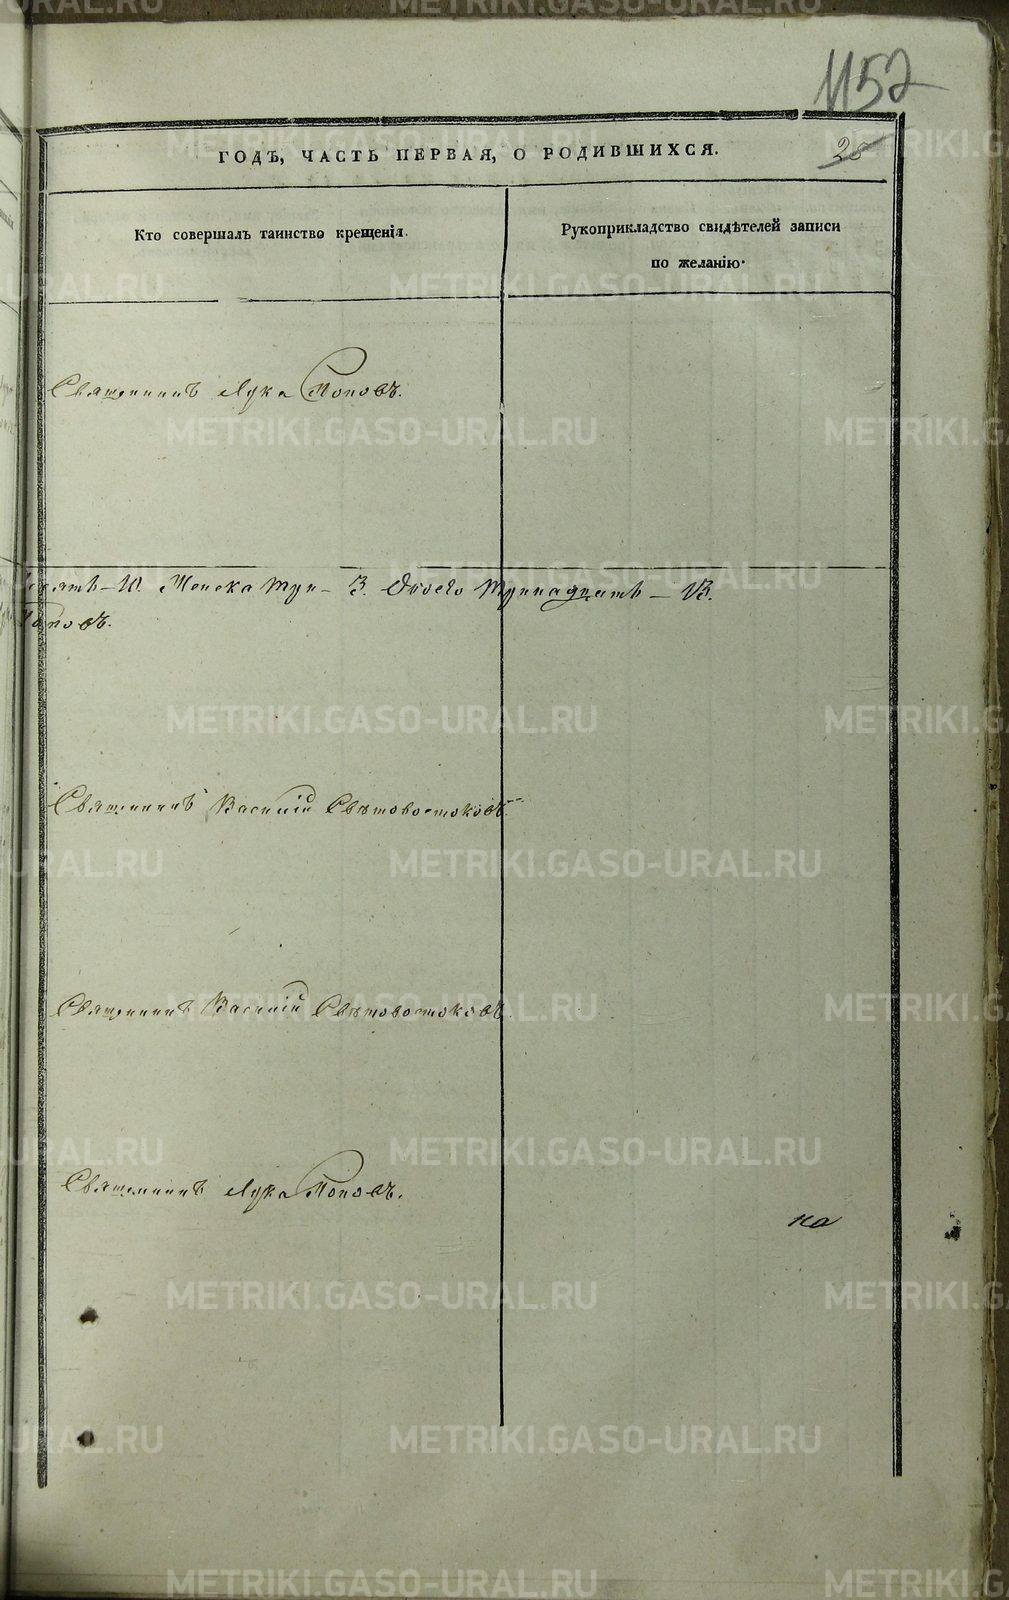 1152
ГОДЪ, ЧАСТЬ ПЕРВАЯ, О РОДИВШИХСЯ.
Кто совершалъ таинство крещенія.
Рукоприкладство свидѣтелей записи
по желанію.
Священникъ Лука Поповъ.
10. Женска три – 3. Обоего тринадцать – 13.
Поповъ.
Священникъ Василій Свѣтовостоковъ.
Священникъ Василій Свѣтовостоковъ.
Священникъ Лука Поповъ.
на
METRIKI.GASO-URAL.RU